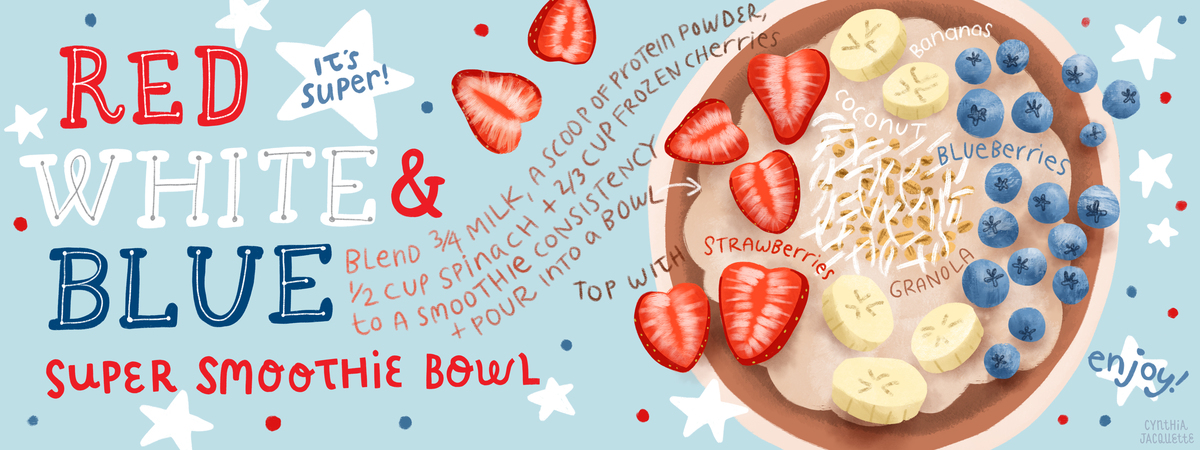 RED
WHITE &
BLUE
SUPER SMOOTHIE BOWL
IT'S
SUPER!
BLEND 3/4 MILK, A SCOOP OF PROTEIN POWDER,
1/2 CUP SPINACH + 2/3 CUP FROZEN CHERRIES
TO A SMOOTHIE CONSISTENCY
+ POUR INTO A BOWL
TOP WITH
STRAWBERRIES
BANANAS
COCONUT
BLUEBERRIES
GRANOLA
enjoy!
CYNTHIA
JACQUETTE